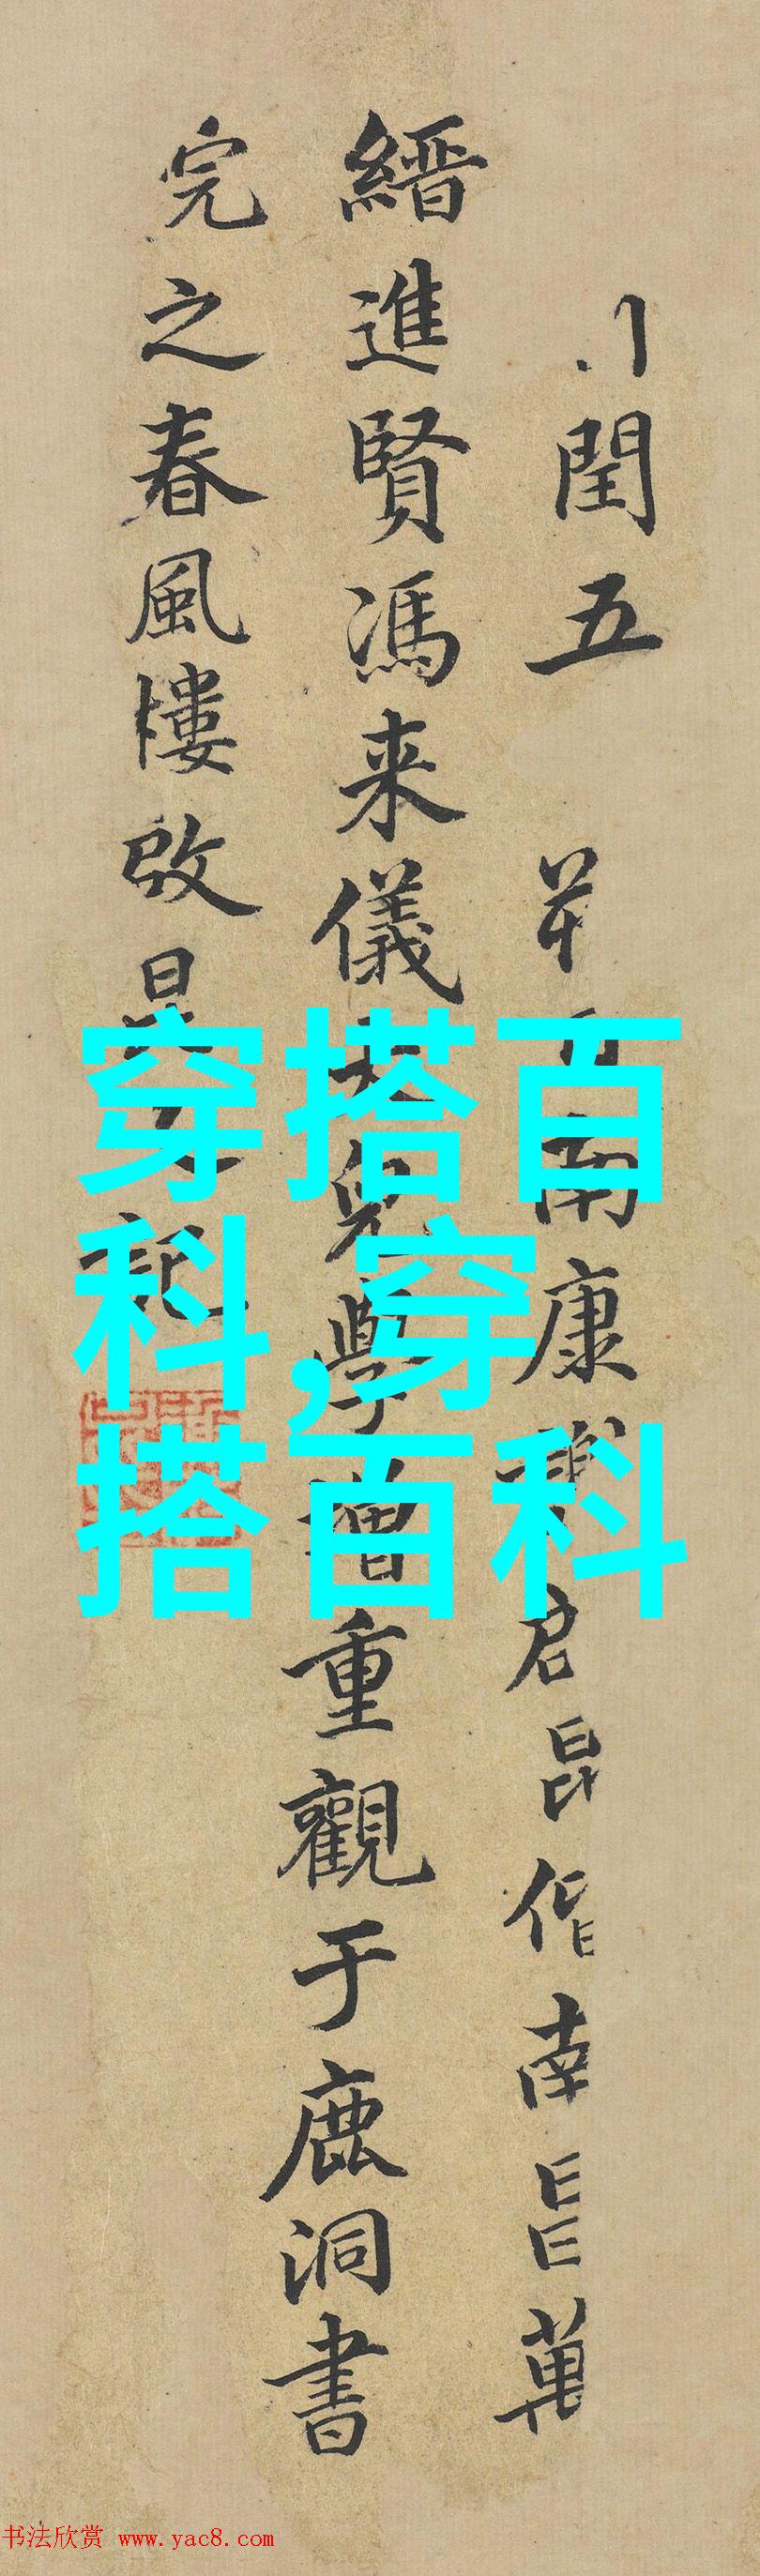 閏五
南康
君昆偕南昌萬
縉進賢馮来儀
學增重觀于鹿洞書
完之春風樓啟
記
穿搭百
科,穿
搭百科
书法欣赏 www.yac8.com